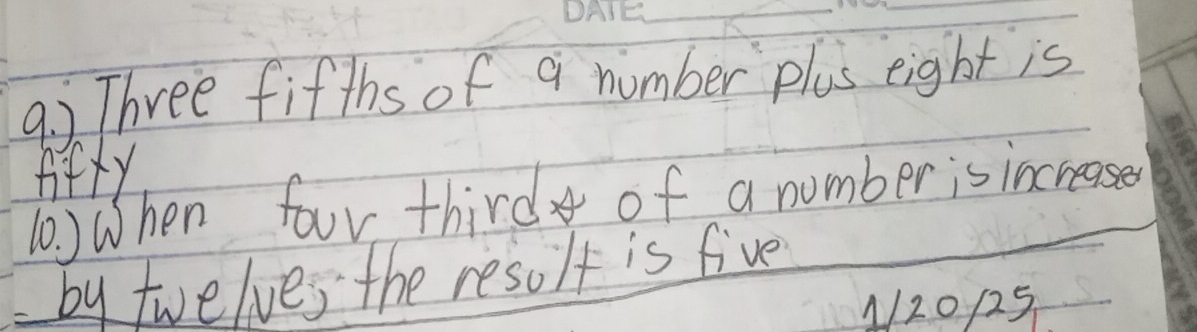 DATE:
9.) Three fifths of a number plus eight is
fifty
10.) When four thirds of a number is increase
by twelve, the result is five
1/20/25